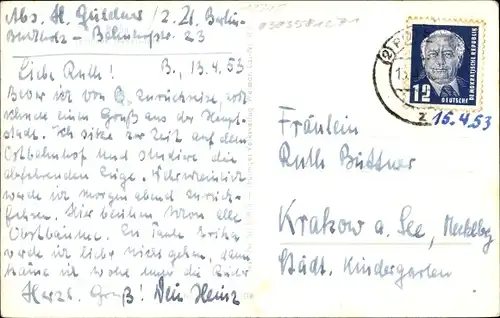 Abs. H. Gürdner / z. Zt. Berlin-
Buchholz - Bahnhofstr. 23
Liebe Ruth! B., 13.4.53
Bevor ich von B. zurückreise, erst
schnell einen Gruß aus der Haupt-
stadt. Ich sitze zur Zeit auf dem
Ostbahnhof und studiere die
abfahrenden Züge. Wahrscheinlich
werde ich morgen abend zurück-
fahren. Hier blühen schon alle
Obstbäume. Zu Tante Erika
werde ich lieber nicht gehen, dann
ich
Herzl. Gruß! Dein Heinz
0303581271
DEUTSCHE
DEMOKRATISCHE REPUBLIK
12
(2)
z 15.4.53
Fräulein
Ruth Büttner
Krakow a. See, Mecklbg
Städt. Kindergarten